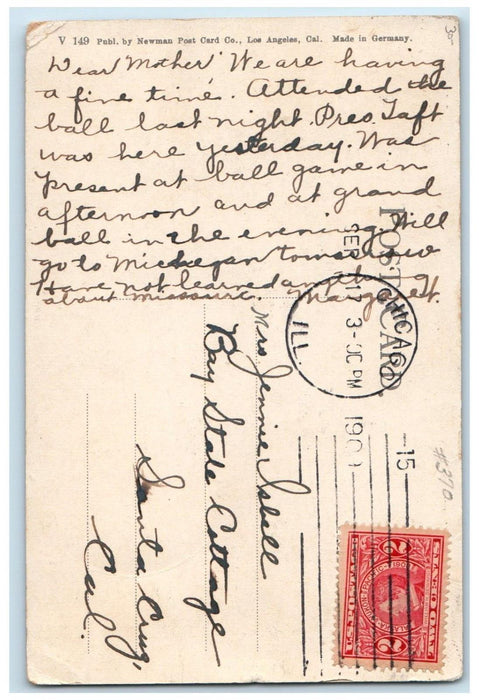 V 149 Publ. by Newman Post Card Co., Los Angeles, Cal. Made in Germany.
Dear Mother: We are having
a fine time. Attended the
ball last night. Pres. Taft
was here yesterday. Was
present at ball game in
afternoon and at grand
ball in the evening. Will
go to Michegan tomorrow
Have not learned anything
about Missouri. Margaret.
POST CARD.
CHICAGO
SEP 17 3-00 PM 1909
ILL.
15
Mrs Jennie Isbell
Bay State Cottage
Santa Cruz,
Cal.
#370
U.S. POSTAGE
ALASKA-YUKON-PACIFIC-1909
2 TWO CENTS 2